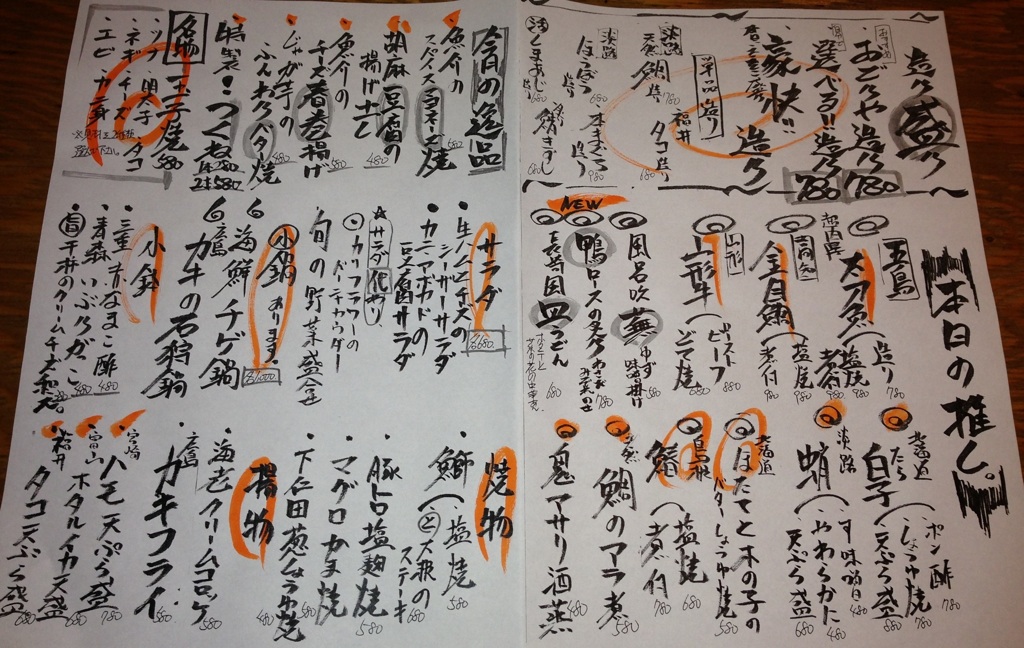 本日の推し。
五島
太刀魚
造り 780
塩焼 980
煮付 980
高知
金目鯛
塩焼 980
煮付 980
山形
山形牛
ローストビーフ 880
どて焼 680
風呂吹 蕪
ゆず味噌掛け
NEW
鴨ロースのタタキ
780
長崎 皿うどん
北海道
たら白子
ポン酢
しょうゆ焼 780
天ぷら盛 880
淡路
蛸
す味噌 480
やわらかた 480
天ぷら盛 680
北海道
ほたてと木の子の
バターしょうゆ焼 580
鳥取
鰆
塩焼 680
煮付 780
鯛のアラ煮 580
鬼アサリ酒蒸 480
造り盛り
おごりや造り 780
選べる!!造り 780
豪快!!造り
単品造り
福井
タコ造り 680
淡路
天然鯛造り 780
淡路
ほうぼう造り 680
本まぐろ造り 980
活しまあじ造り 680
鯖きずし
今日の逸品
魚介の
スパイスマヨネーズ焼 680
胡麻豆腐の
揚げ出し 480
魚介の
チーズ春巻揚げ 580
じゃが芋の
ふんわりバタ焼 480
特製!つくね
2本580
名物玉子焼 580
・ツナ・明太子・タコ
・ネギ・チーズ
・エビ・カニ身
サラダ
各680
・生ハムとチーズの
シーザーサラダ
・カニアボカドの
豆腐サラダ
☆サラダ代わり
・カリフラワーの
バーニャカウダー
旬の野菜盛合
小鍋あります。
各1,000
海鮮チゲ鍋
広島 カキの石狩鍋
小鉢
・三重 赤なまこ酢 480
・青森 いぶりがっこ 480
・旨干柿のクリームチーズ和え。
焼物
鰤
塩焼 580
と大根の
ステーキ 680
・豚トロ塩麹焼 580
・マグロかま焼
・下仁田葱しょうゆ焼 480
揚物
・海老クリームコロッケ 580
広島
カキフライ 580
宮崎
ハモ天ぷら盛 780
富山
ホタルイカ天盛 680
福井
タコ天ぷら盛 680